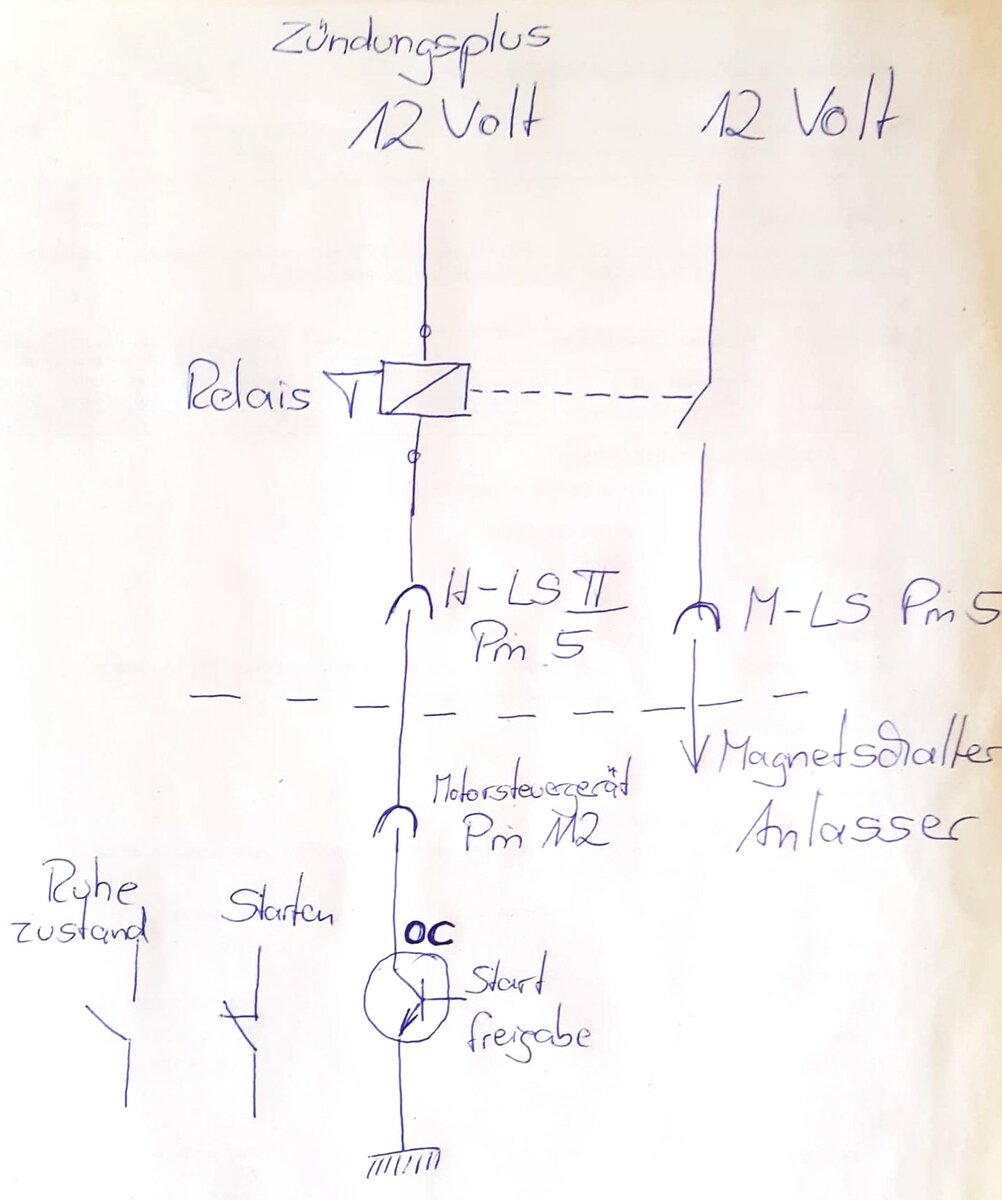 Zündungsplus
12 Volt
12 Volt
Relais
H-LS II
Pin 5
M-LS Pin 5
Magnetschalter
Anlasser
Motorsteuergerät
Pin M2
Ruhe
zustand
Starten
OC
Start
freigabe